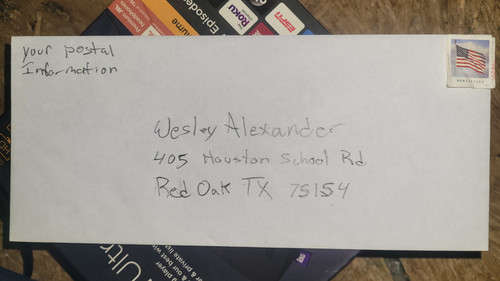 your postal
Information
Wesley Alexander
405 Houston School Rd
Red Oak TX 75154
Episodes
Roku
ESPN
Ultr